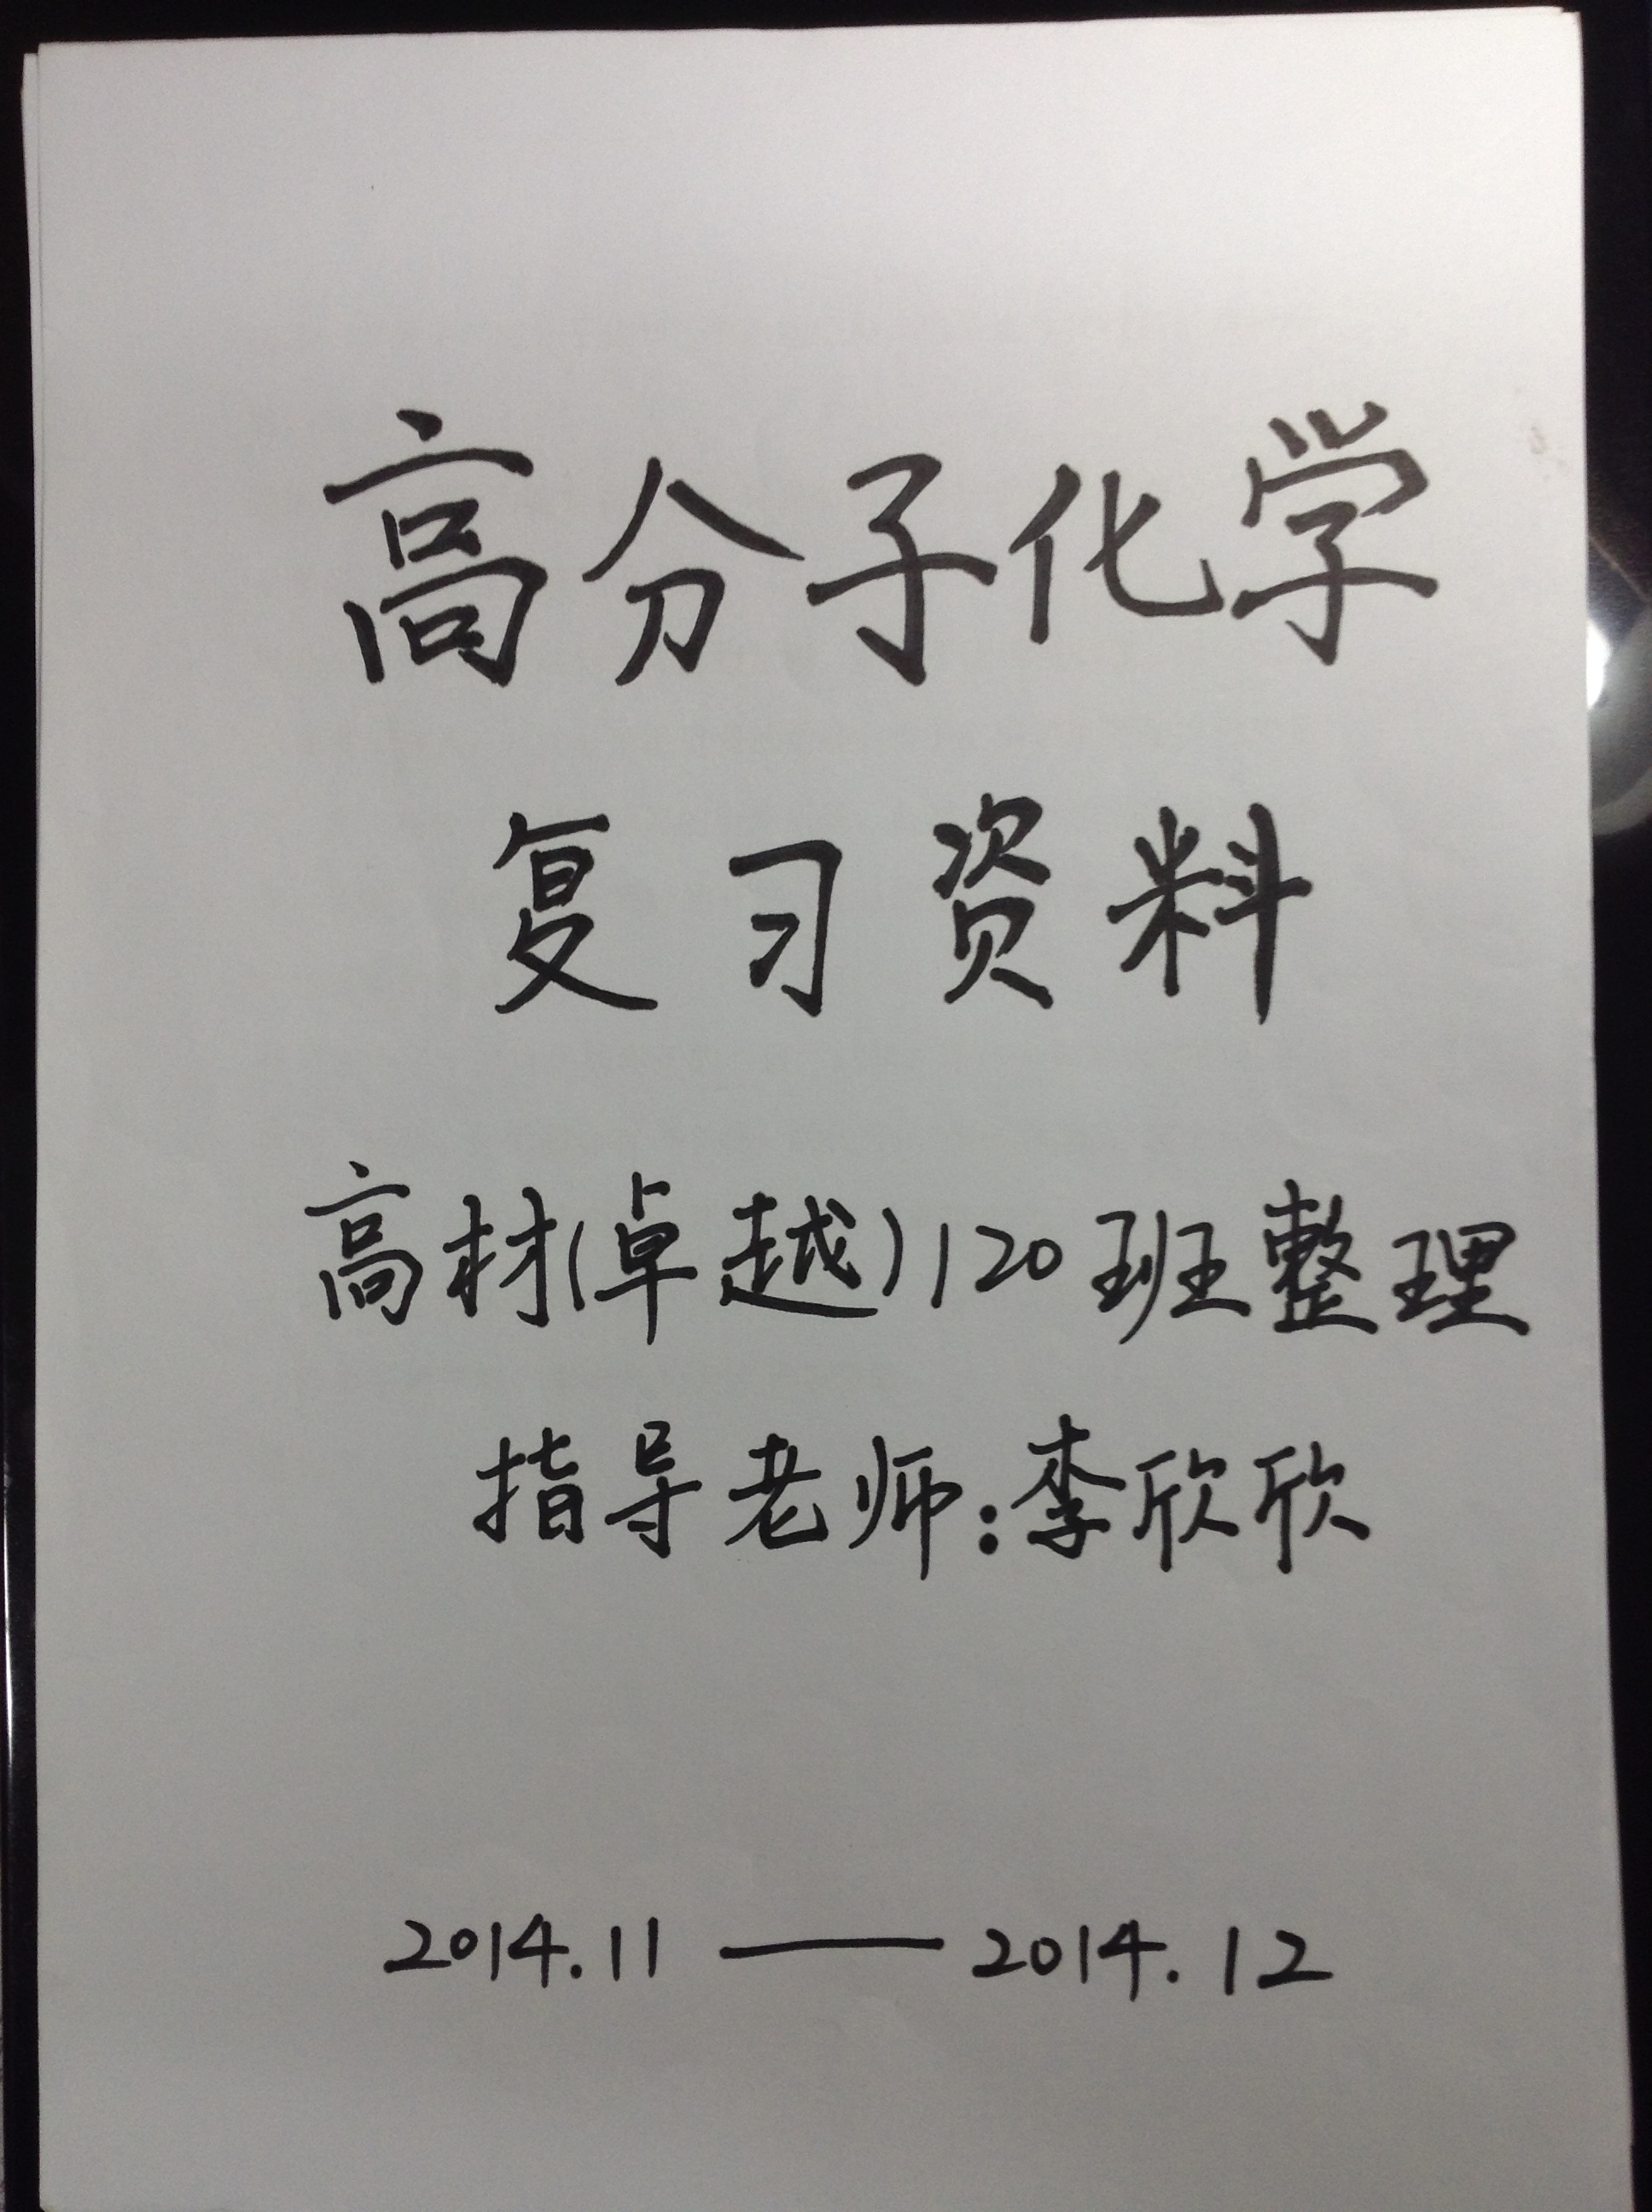 高分子化学
复习资料
高材(卓越)120班整理
指导老师:李欣欣
2014.11——2014.12